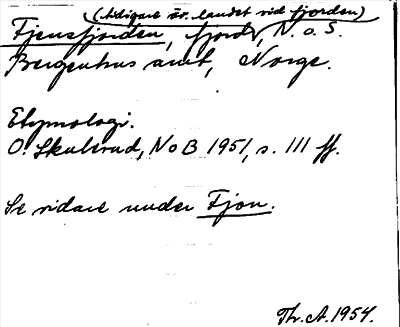 (tidigare äv. landet vid fjorden)
Fjensfjorden, fjord, N. o. S.
Bergenhus amt, Norge.
Etymologi.
O. Skulerud, NoB 1951, s. 111 ff.
Se vidare under Fjon.
Th. A. 1954.